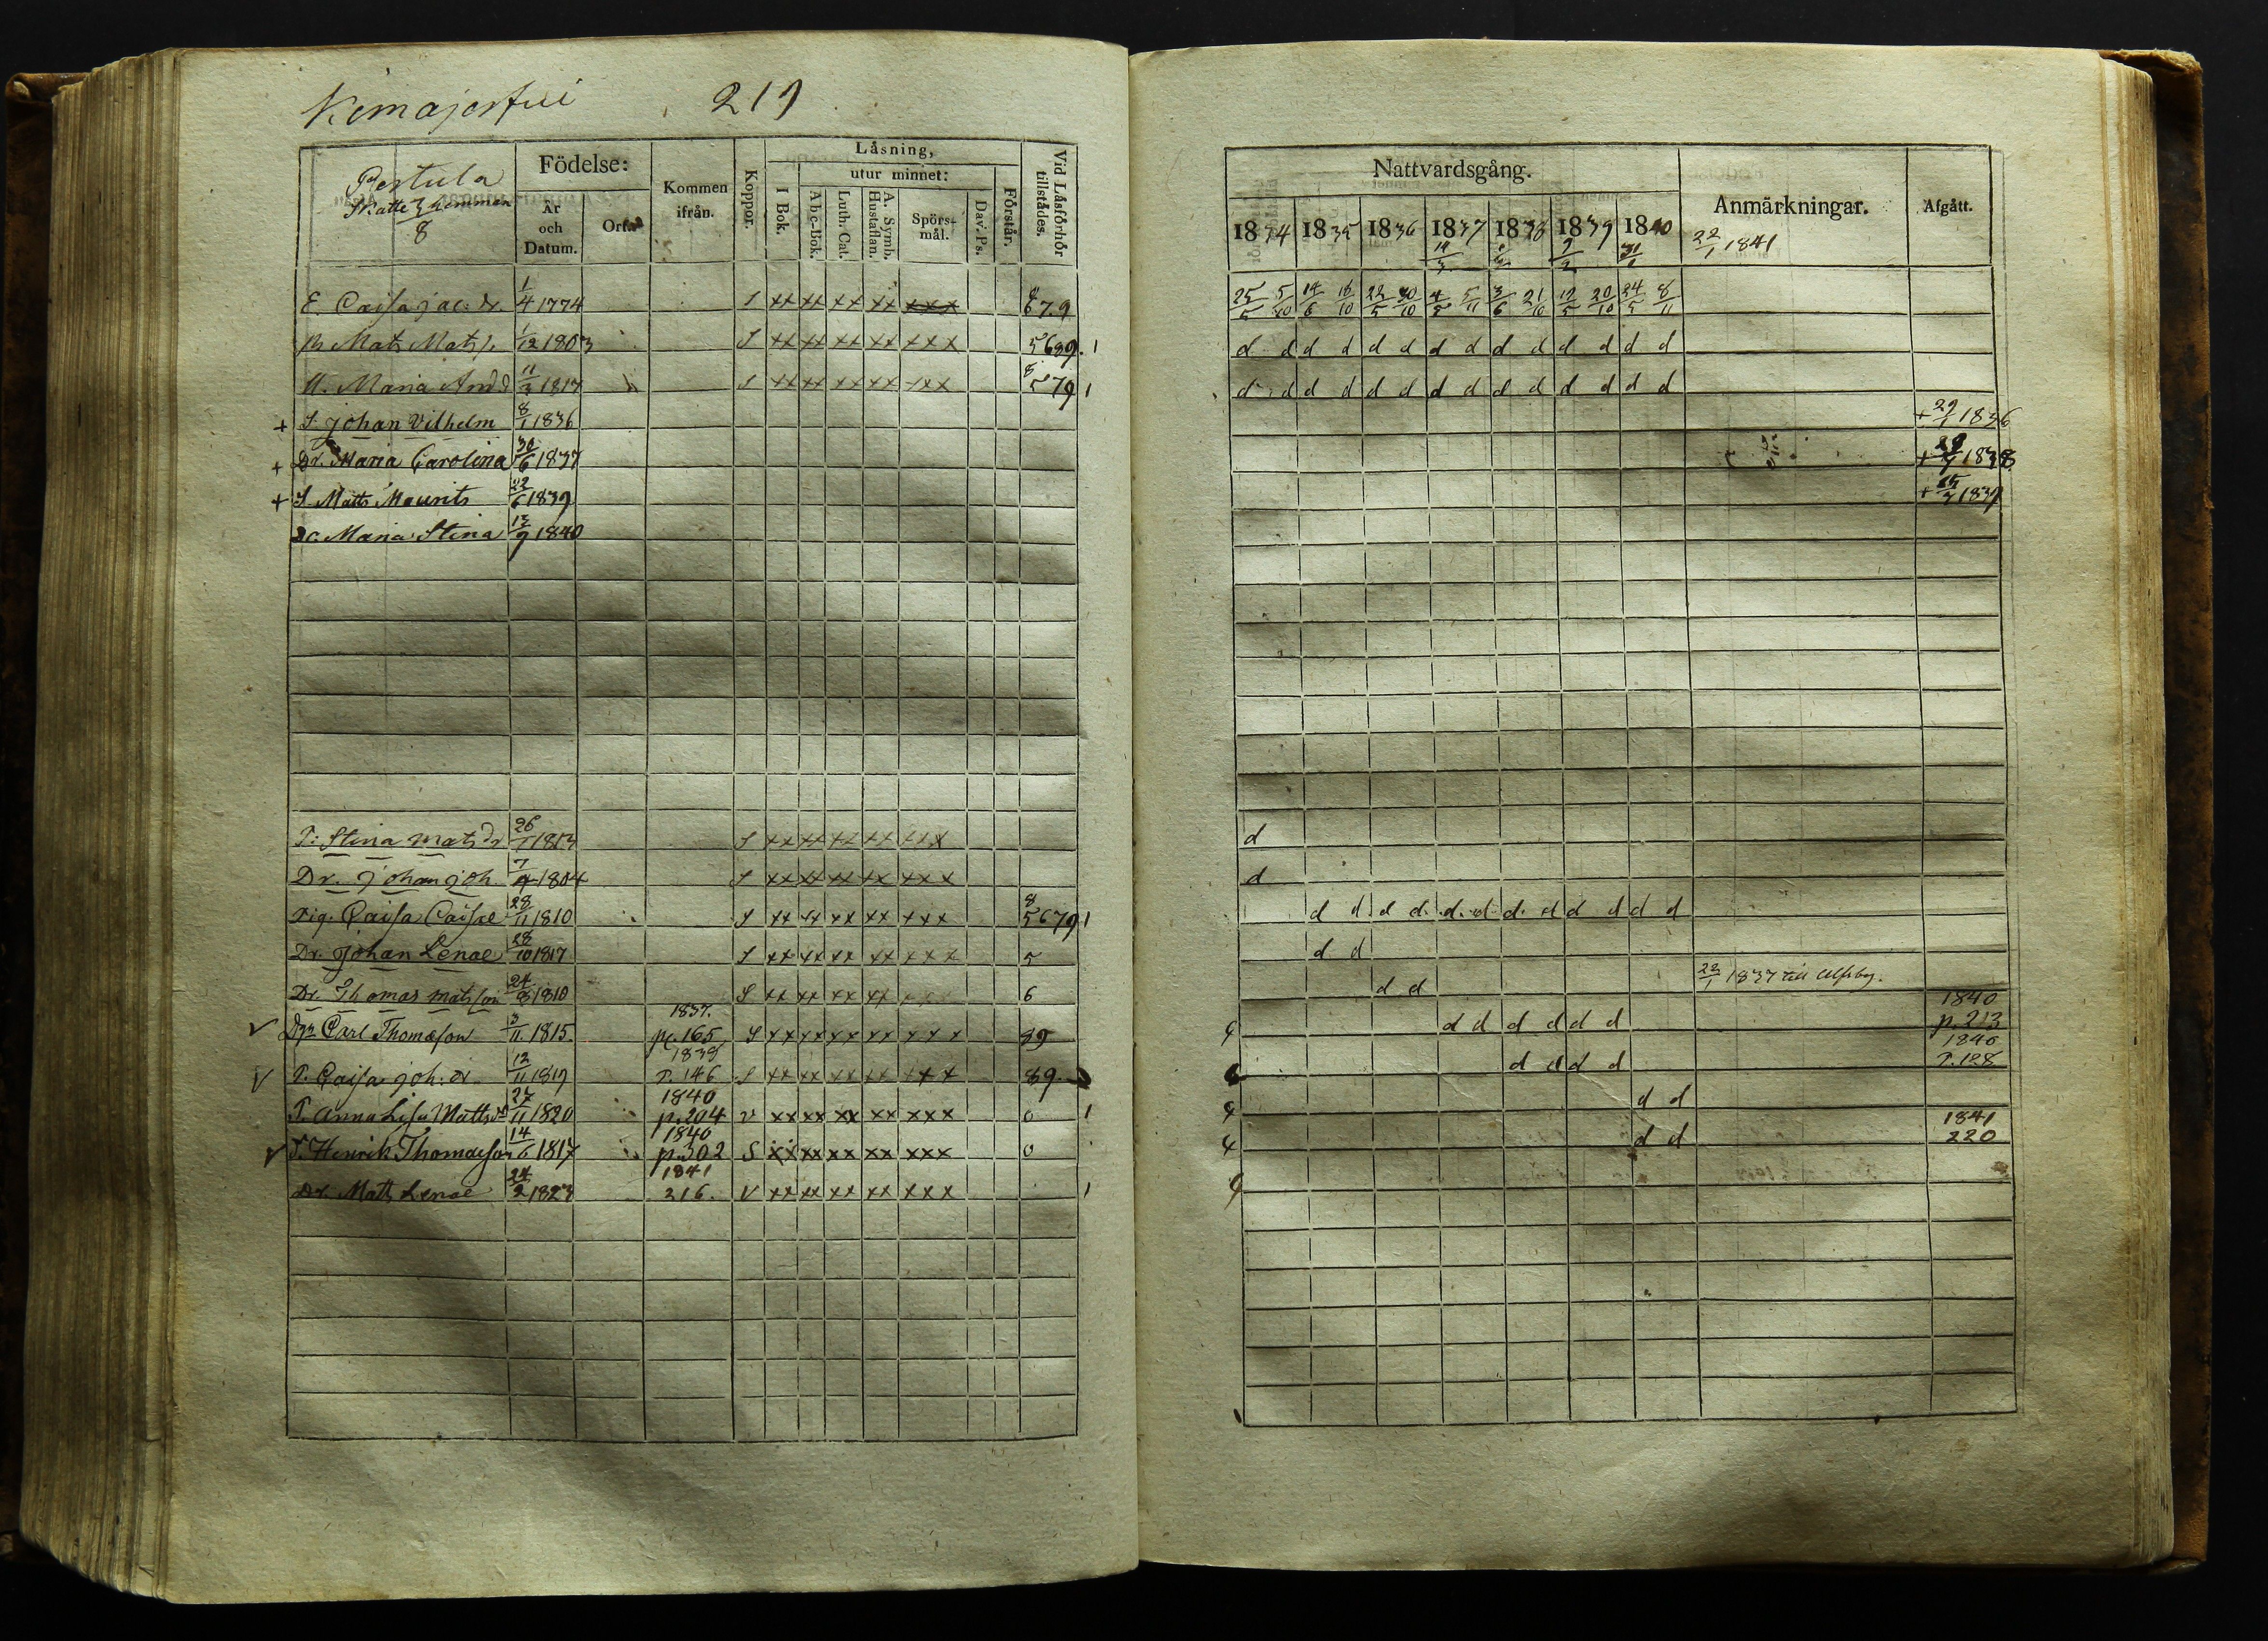 219
Pertula
Skatte 3/8 hemman
Födelse:
År och Datum.
Ort.
Kommen ifrån.
Koppor.
Låsning,
utur minnet:
I Bok.
Abc-Bok.
Luth. Cat.
A. Symb. Hustaflan.
Spörsmål.
Dav. Ps.
Förstår.
Vid Låsförhör tillstådes.
E. Caisa Jac: dr. 1/4 1774 S xx xx xx xx xxx 8 679
B Mats Mats s. 1/12 1803 S xx xx xx xx xxx 5689. 1
H. Maria And d 11/3 1817 S xx xx xx xx xxx 8 579 1
+ S. Johan Vilhelm 8/1 1836
+ Dr. Maria Carolina 30/6 1837
+ S Matts Maurits 22/6 1839
Dr. Maria Stina 13/9 1840
P: Stina Mats dr 26/1 1813 S xx xx xx xx xxx
Dr. Johan Joh. 7/9 1804 S xx xx xx xx xxx
Pig. Caisa Caisae 28/11 1810 S xx xx xx xx xxx 8 5679 1
Dr. Johan Lenae 28/10 1817 S xx xx xx xx xxx 5
Dr. Thomas Matsson 24/8 1810 S xx xx xx xx xxx 6
V Dgr Carl Thomasson 3/11 1815. 1837. p. 165 S xx xx xx xx xxx 89
V P. Caisa Joh: dr 12/11 1819 1838 P. 146 S xx xx xx xx xxx 89.
P. Anna Lisa Mattsdr 27/11 1820 1840 p. 204 v xx xx xx xx xxx 0 1
V Dr. Henrik Thomasson 14/6 1817 1840 p. 302 S xx xx xx xx xxx 0
Dr. Matts Lenae 24/2 1823 1841 216. V xx xx xx xx xxx 1
Nattvardsgång.
Anmärkningar.
Afgått.
1834 1835 1836 1837 1838 1839 1840 22/1 1841
25/5 5/10 14/6 18/10 22/5 30/10 4/5 5/11 3/6 21/10 12/5 20/10 24/5 8/11
d d d d d d d d d d d d d d
d d d d d d d d d d d d d d
+ 29/1 1836
+ 28/4 1838
+ 15/7 1839
d
d
d d d d d d d d d d d d
d d
d d 22/1 1837 till Ulfsby.
d d d d d d 1840 p. 213
d d d d 1840 P. 128
d d
d d 1841 220